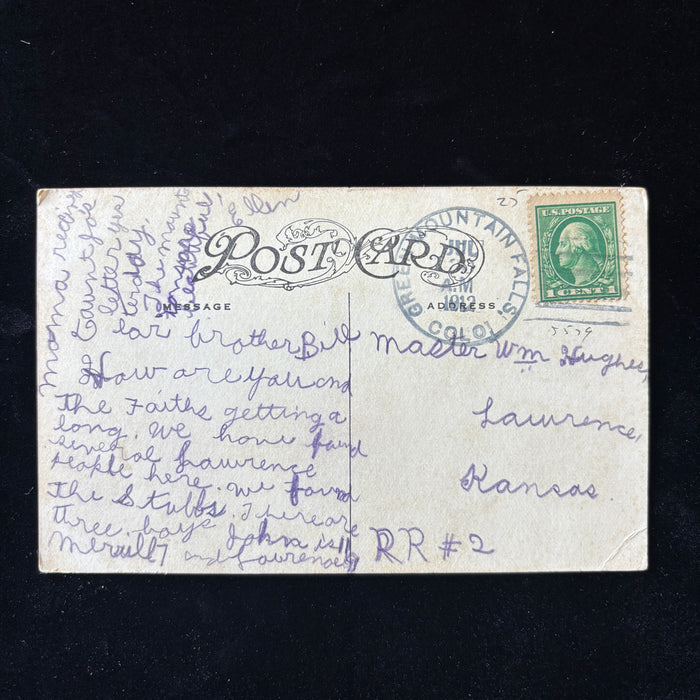 25
U.S. POSTAGE
1 CENT 1
GREEN MOUNTAIN FALLS,
JUL
A.M
1913
COLO.
5579
POST CARD
MESSAGE
ADDRESS
Dear brother Bill
How are you and
the Faiths getting a
long. We have found
several Lawrence
people here. We found
the Stubbs. There are
three boys John is 11
Merrill 7 and Lawrence 9
mama receiv
ed aunt Jo's
letter yes
terday.
The mount
ains are
beautiful
Ellen
Master Wm Hughes,
Lawrence,
Kansas.
RR #2